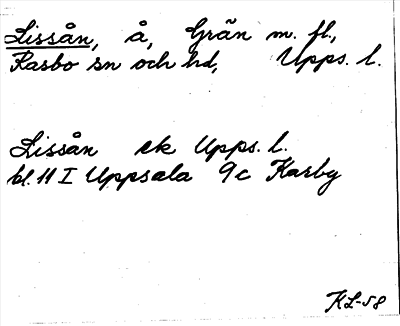 Lissån, å, Grän m. fl.,
Rasbo sn och hd, Upps. l.
Lissån ek Upps. l.
bl. 11 I Uppsala 9c Karby
KL-58